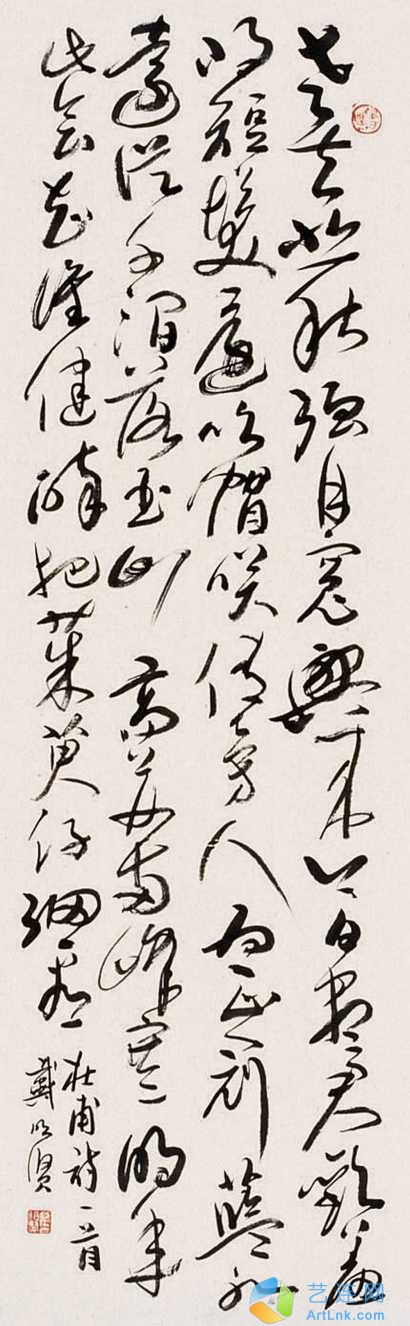 老去悲秋强自寬興来今日尽君歡羞
将短髮還吹帽笑倩旁人为正冠藍水
遠從千澗落玉山高并兩峰寒明年
此会知谁健醉把茱萸仔細看
杜甫诗一首
戴明贤
艺连网
ArtLnk.com